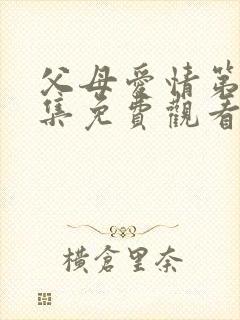 父母愛情第
集免費觀看
橫倉里奈